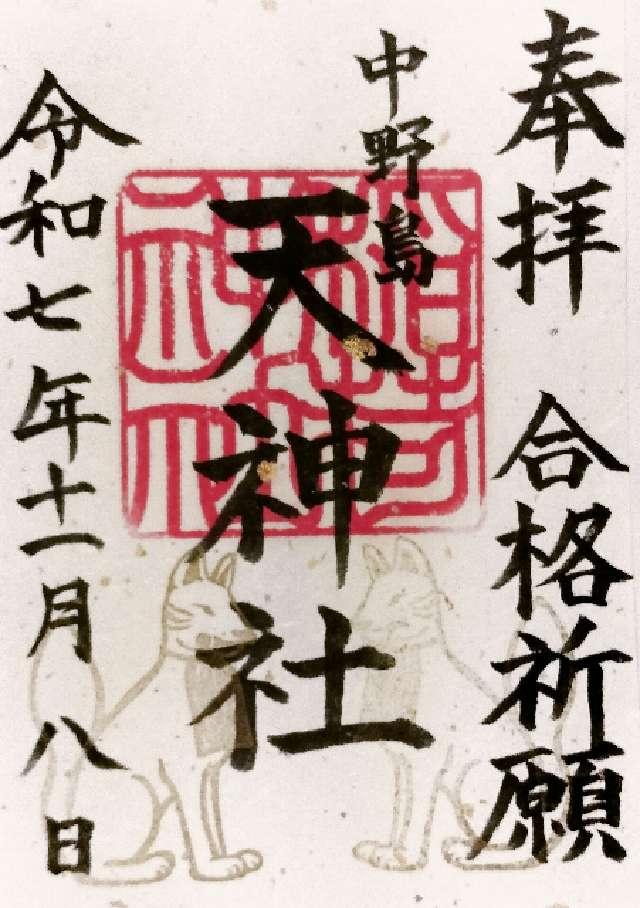 奉拝 合格祈願
中野島
天神社
令和七年十一月八日